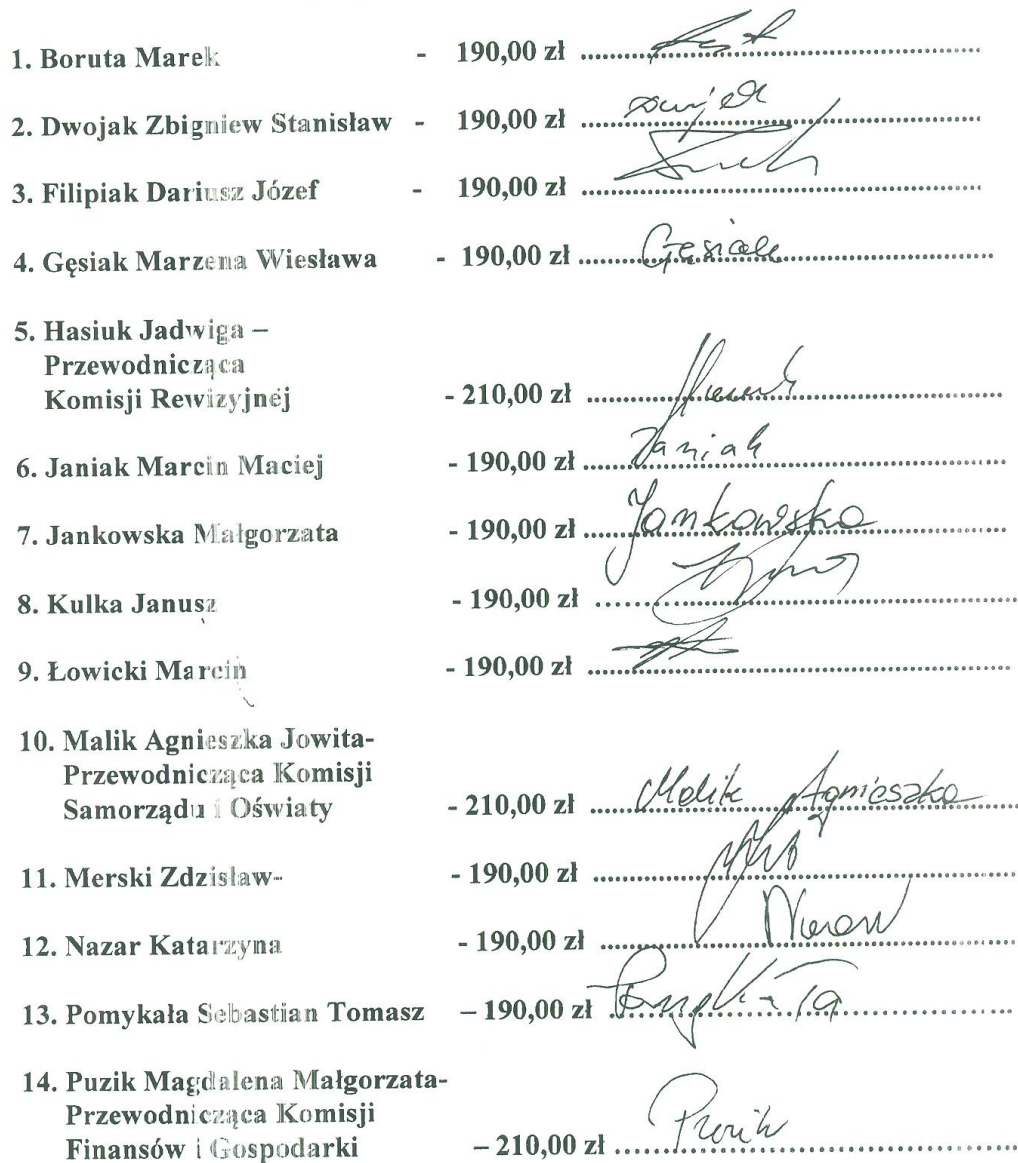 1. Boruta Marek - 190,00 zł ................
2. Dwojak Zbigniew Stanisław - 190,00 zł ................
3. Filipiak Dariusz Józef - 190,00 zł ................
4. Gęsiak Marzena Wiesława - 190,00 zł ................ Gęsiak
5. Hasiuk Jadwiga –
Przewodnicząca
Komisji Rewizyjnej - 210,00 zł ................
6. Janiak Marcin Maciej - 190,00 zł ................ Janiak
7. Jankowska Małgorzata - 190,00 zł ................ Jankowska
8. Kulka Janusz - 190,00 zł ................
9. Łowicki Marcin - 190,00 zł ................
10. Malik Agnieszka Jowita-
Przewodnicząca Komisji
Samorządu i Oświaty - 210,00 zł ................ Malik Agnieszka
11. Merski Zdzisław- - 190,00 zł ................
12. Nazar Katarzyna - 190,00 zł ................
13. Pomykała Sebastian Tomasz – 190,00 zł ................
14. Puzik Magdalena Małgorzata-
Przewodnicząca Komisji
Finansów i Gospodarki – 210,00 zł ................ Puzik